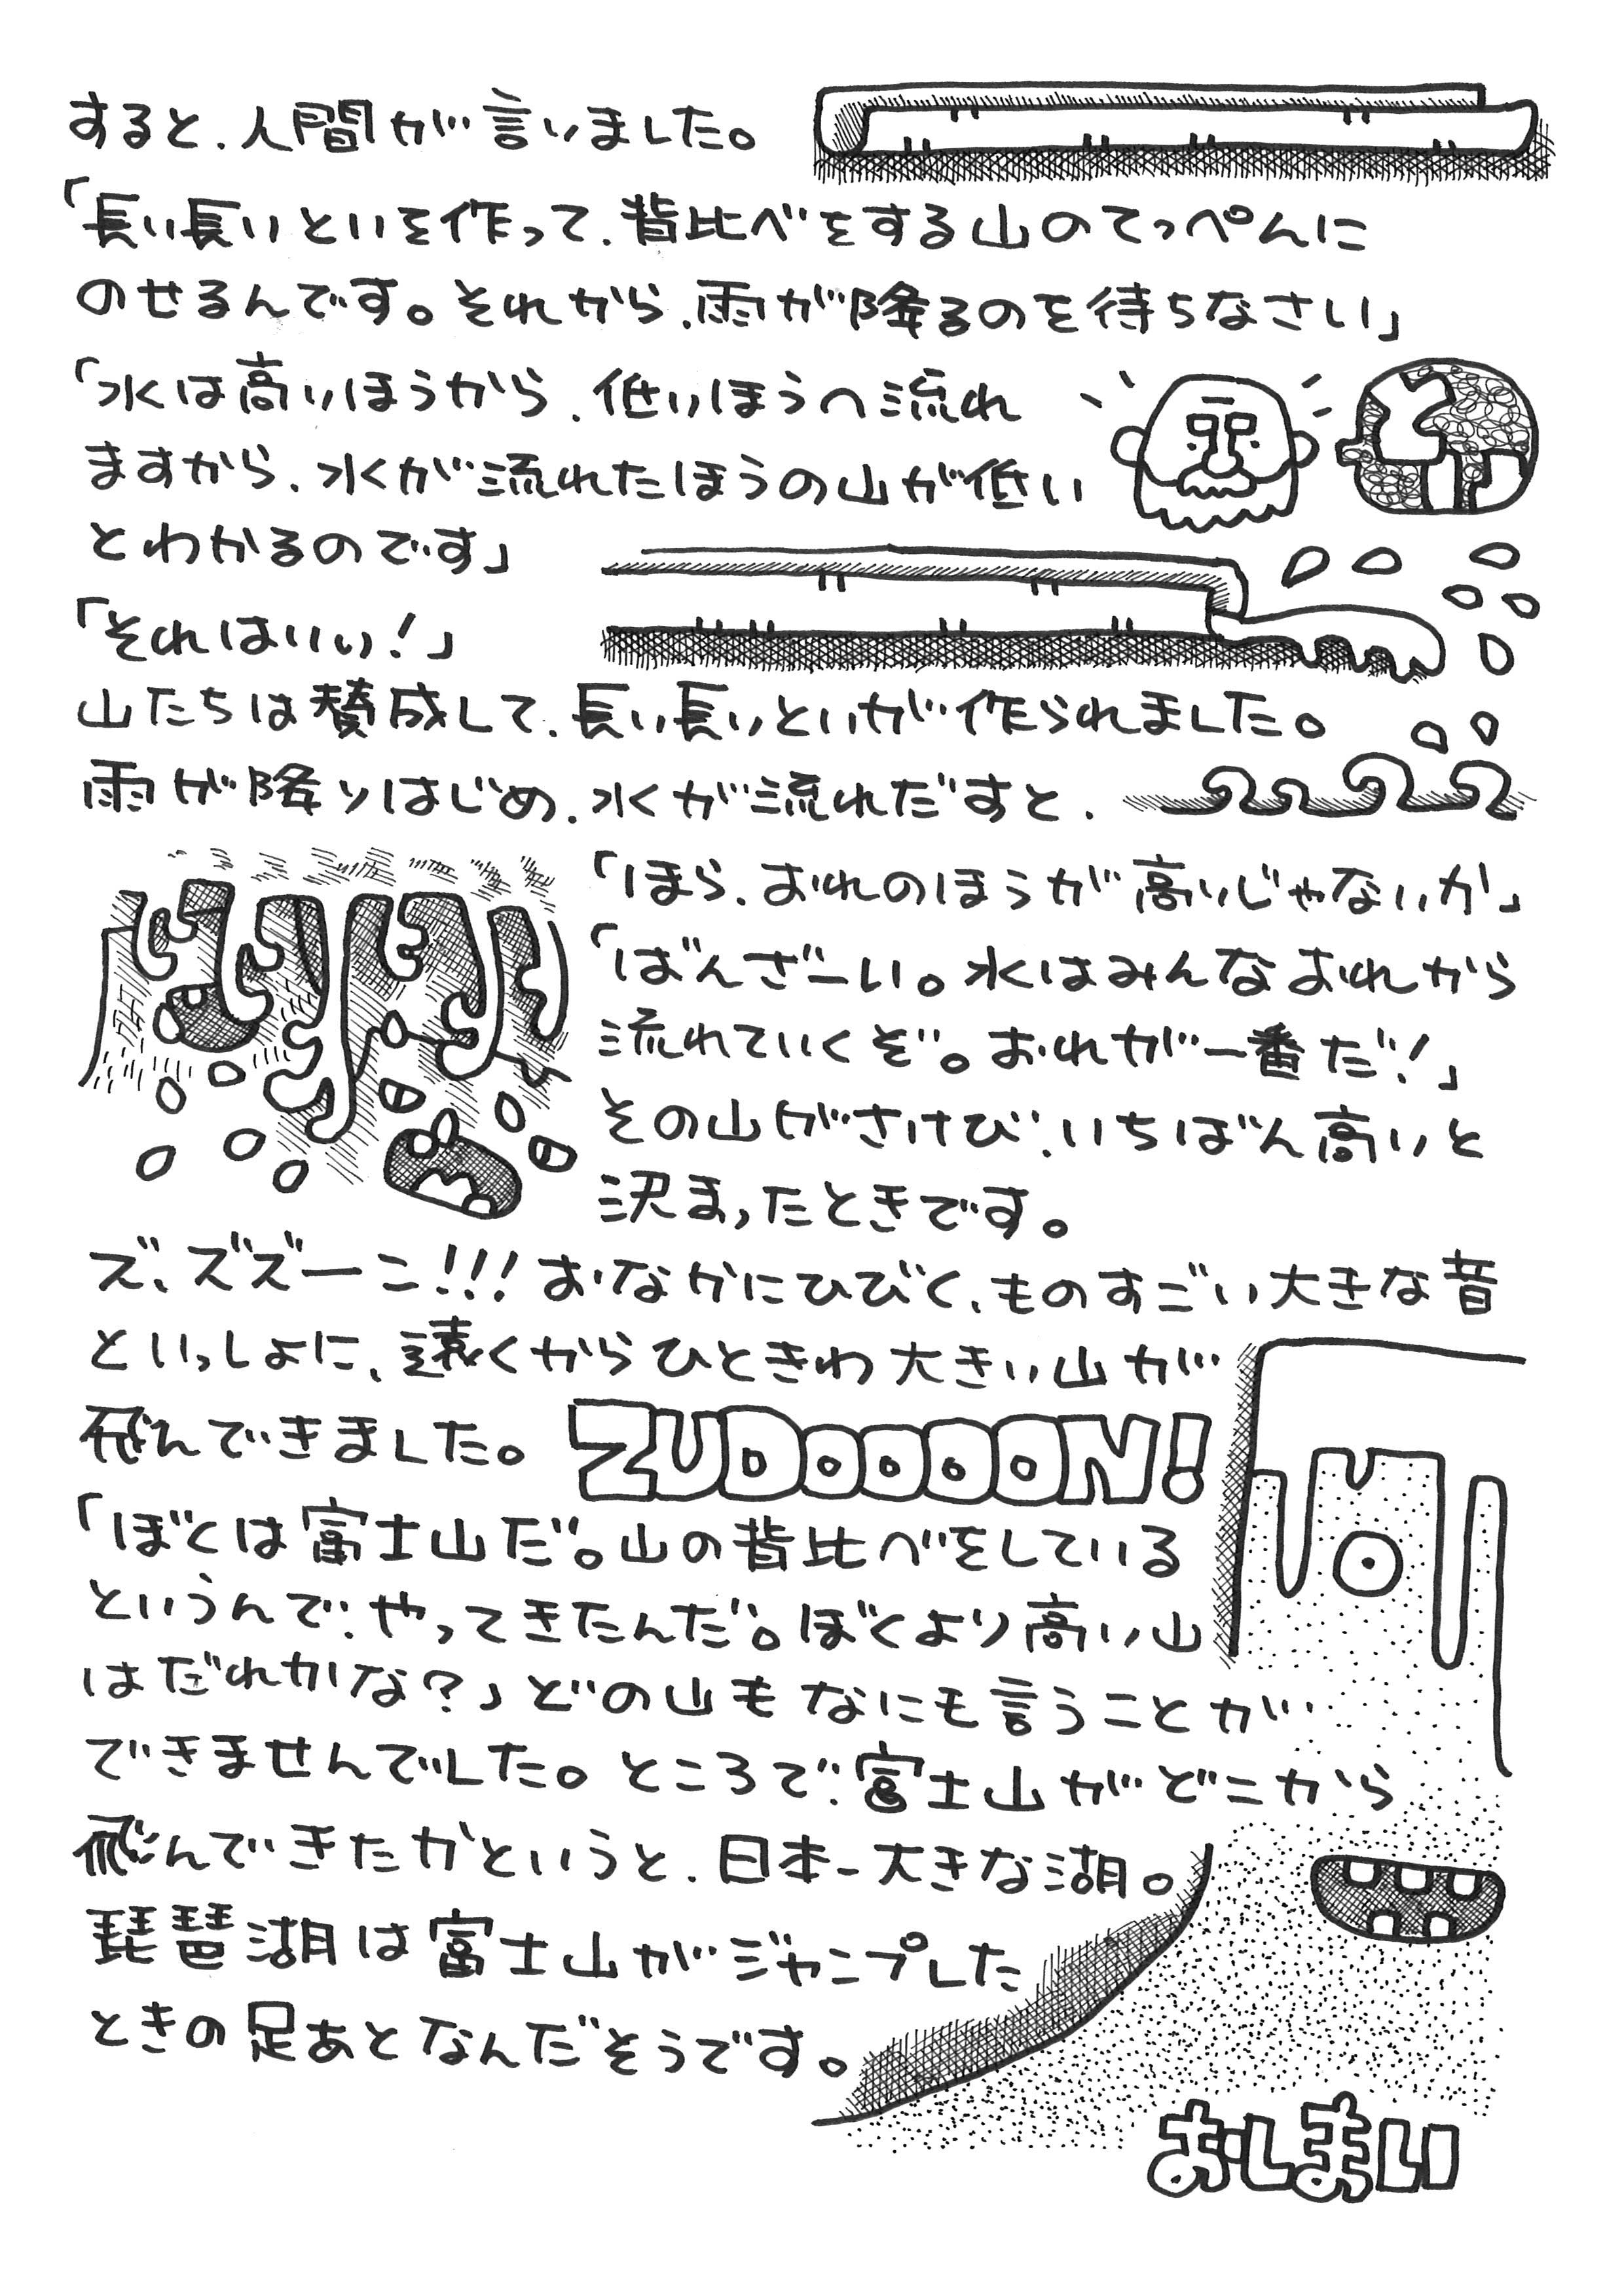 すると、人間が言いました。
「長い長いといを作って、背比べをする山のてっぺんに
のせるんです。それから、雨が降るのを待ちなさい」
「水は高いほうから、低いほうへ流れ
ますから、水くが流れたほうの山が低い
とわかるのです」
「それはいい！」
山たちは賛成して、長い長いといが作られました。
雨が降りはじめ、水くが流れだすと、
「ほら、おれのほうが高いじゃないか」
「ばんざーい。水はみんなおれから
流れていくぞ。おれが一番だ！」
その山がさけび、いちばん高いと
決まったときです。
ズ、ズズーン!!! おなかにひびく、ものすごい大きな音
といっしょに、遠くからひときわ大きい山が
飛んできました。
ZUDOOOON!
「ぼくは富士山だ。山の背比べをしている
というんで、やってきたんだ。ぼくより高い山
はだれかな？」どの山もなにも言うことが
できませんでした。ところで、富士山がどこから
飛んできたかというと、日本一大きな湖。
琵琶湖は富士山がジャンプした
ときの足あとなんだそうです。
おしまい